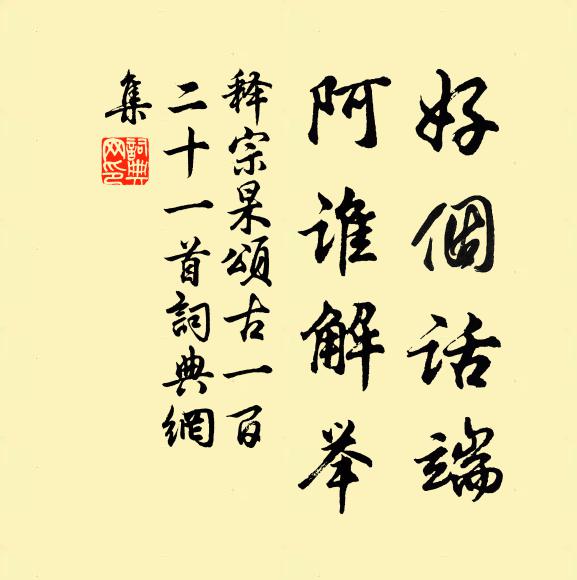 好個话端
阿谁解举
释宗杲颂古一百
二十一首詞典網
集
詞典
网印